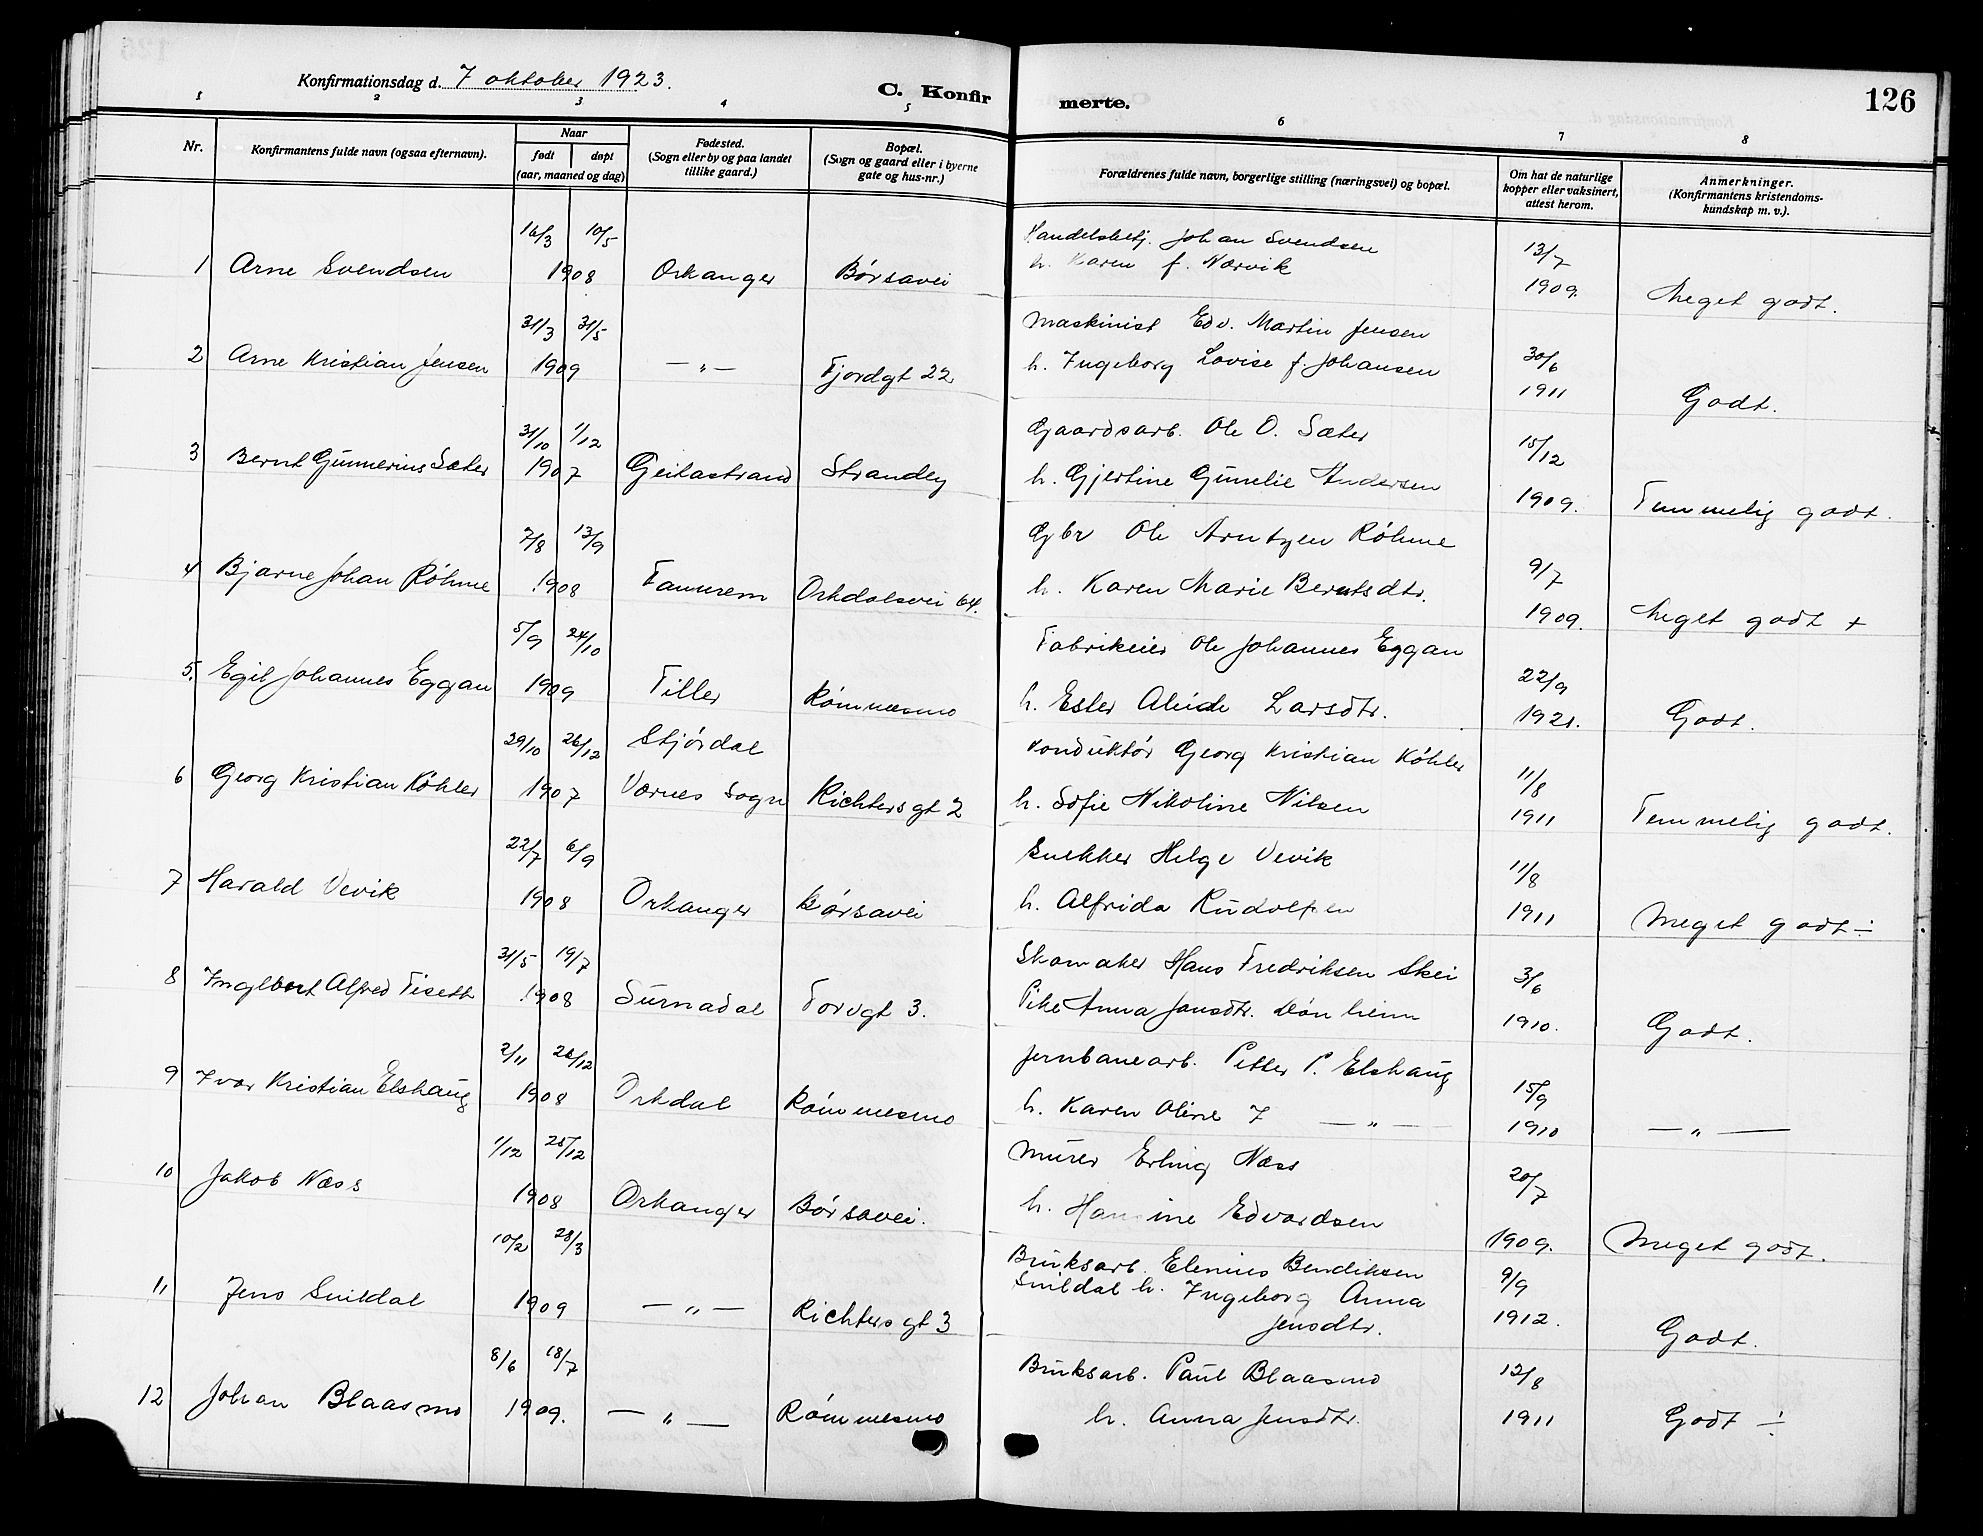 Konfirmationsdag d. 7 oktober 1923.
C. Konfir
merte.
126
1 2 3 4 5 6 7 8
Nr.
Konfirmantens fulde navn (ogsaa efternavn).
Naar
født døpt
(aar, maaned og dag)
Fødested.
(Sogn eller by og paa landet
tillike gaard.)
Bopæl.
(Sogn og gaard eller i byerne
gate og hus-nr.)
Forældrenes fulde navn, borgerlige stilling (næringsvei) og bopæl.
Om hat de naturlige
kopper eller vaksinert,
attest herom.
Anmerkninger.
(Konfirmantens kristendoms-
kundskap m. v.).
16/3 10/5 Handelsbetj. Johan Svendsen 13/7
1 Arne Svendsen 1908 Orkanger Børsavei h. Karen f. Narvik 1909. Meget godt.
31/3 31/5 Maskinist Edv. Martin Jensen 30/6
2 Arne Kristian Jensen 1909 — „ — Fjordgt 22 h. Ingeborg Lovise f. Johansen 1911 Godt.
31/10 1/12 Gaardsarb. Ole O. Sæter 15/12
3 Bernt Gunnerius Sæter 1907 Geitastrand Strandey h. Gjertine Gunelie Andersen 1909. Temmelig godt.
7/8 13/9 Gbr Ole Arntzen Røhme 9/7
4 Bjarne Johan Røhme 1908 Fannrem Orkdalsvei 64. h. Karen Marie Berntsdtr. 1909. Meget godt +
5/9 24/10 Fabrikeier Ole Johannes Eggan 22/9
5. Egil Johannes Eggan 1909 Tiller Rømmesmo h. Ester Alide Larsdtr. 1921. Godt.
29/10 26/12 Stjørdal Konduktør Georg Kristian Køhler 11/8
6 Georg Kristian Køhler 1907 Værnes Sogn Richtersgt 2 h. Sofie Nikoline Nilsen 1911 Temmelig godt.
22/7 6/9 Snekker Helge Vevik 11/8
7 Harald Vevik 1908 Orkanger Børsavei h. Alfrida Rudolfsen 1911 Meget godt ÷
31/5 19/7 Skomaker Hans Fredriksen Skei 3/6
8 Ingebert Alfred Tiseth 1908 Surnadal Torvgt 3. Pike Anna Jansdtr. Dønheim 1910. Godt.
2/11 26/12 Jernbanearb. Petter P. Elshaug 15/9
9 Ivar Kristian Elshaug 1908 Orkdal Rømmesmo h. Karen Oline F — „ — 1910 — „ —
1/12 25/12 Murer Erling Næss 20/7
10 Jakob Næss 1908 Orkanger Børsavei. h. Hansine Edvardsen 1909. Meget godt.
10/2 28/3 Bruksarb. Elenius Bendiksen 9/9
11 Jens Snildal 1909 — „ — Richtersgt 3 Snildal h. Ingeborg Anna 1912. Godt.
Jensdtr.
8/6 18/7 Bruksarb. Paul Blaasmo 12/8
12 Johan Blaasmo 1909. — „ — Rømmesmo h. Anna Jensdtr. 1911 Godt ÷